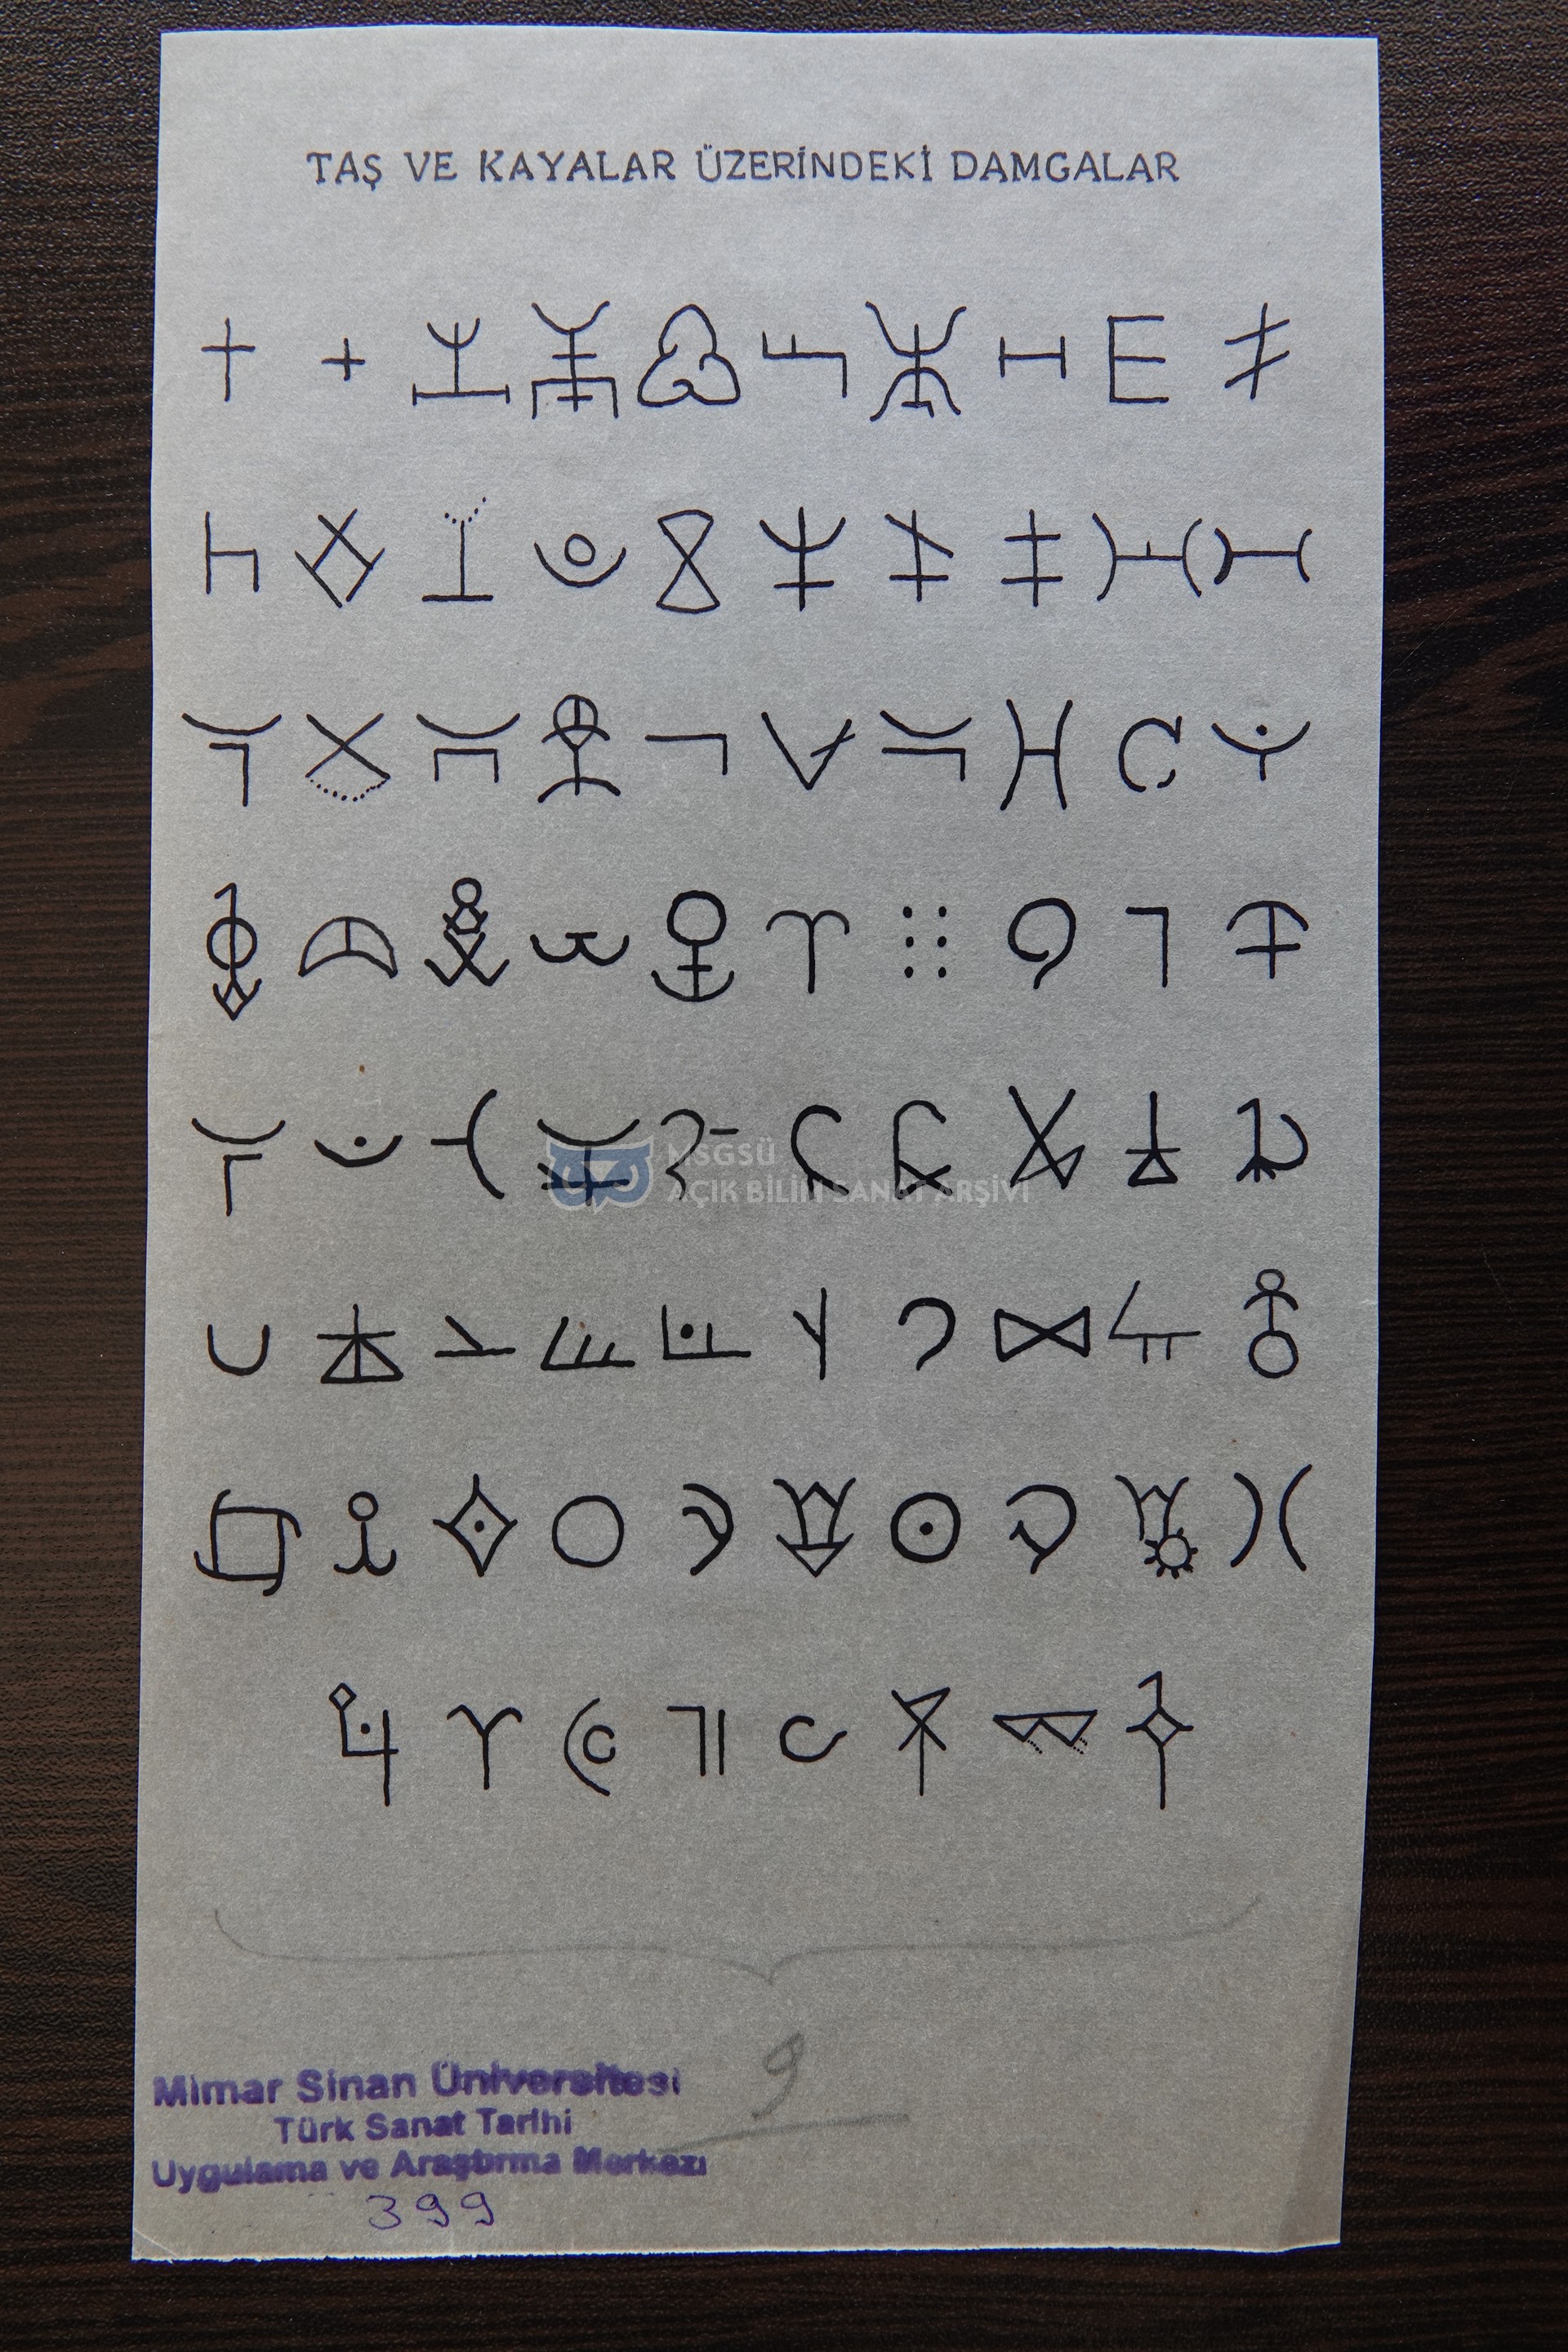 TAŞ VE KAYALAR ÜZERİNDEKİ DAMGALAR
MSGSÜ
AÇIK BİLİM SANAT ARŞİVİ
9
Mimar Sinan Üniversitesi
Türk Sanat Tarihi
Uygulama ve Araştırma Merkezi
399